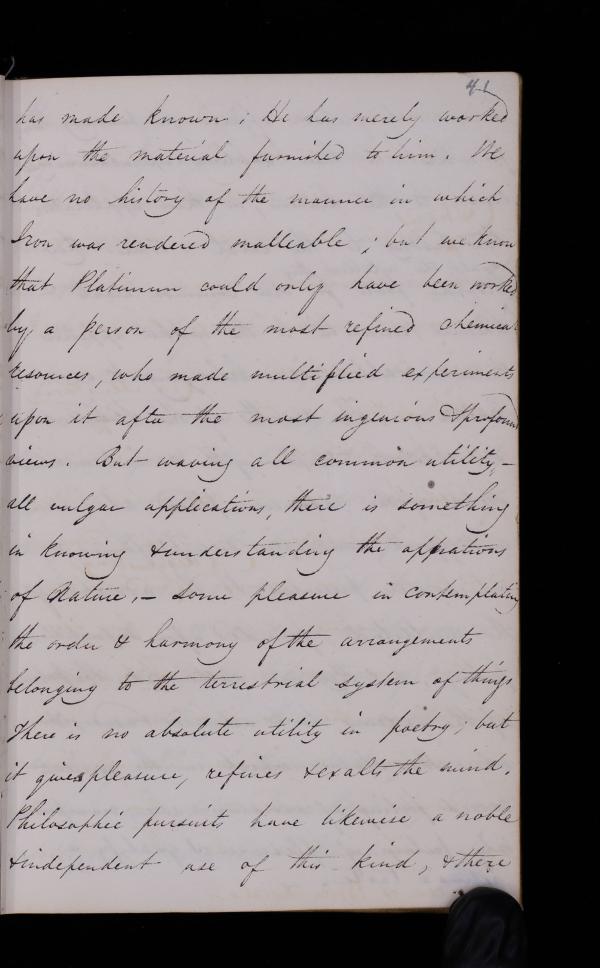 41
has made known; He has merely worked
upon the material furnished to him. We
have no history of the manner in which
Iron was rendered malleable; but we know
that Platinum could only have been worked
by a person of the most refined chemical
resources, who made multiplied experiments
upon it after the most ingenious & profound
views. But waving all common utility, –
all vulgar applications, there is something
in knowing & understanding the opperations
of Nature, – some pleasure in contemplating
the order & harmony of the arrangements
belonging to the terrestrial system of things
There is no absolute utility in poetry; but
it gives pleasure, refines & exalts the mind.
Philosophic pursuits have likewise a noble
& independent use of this kind, & there